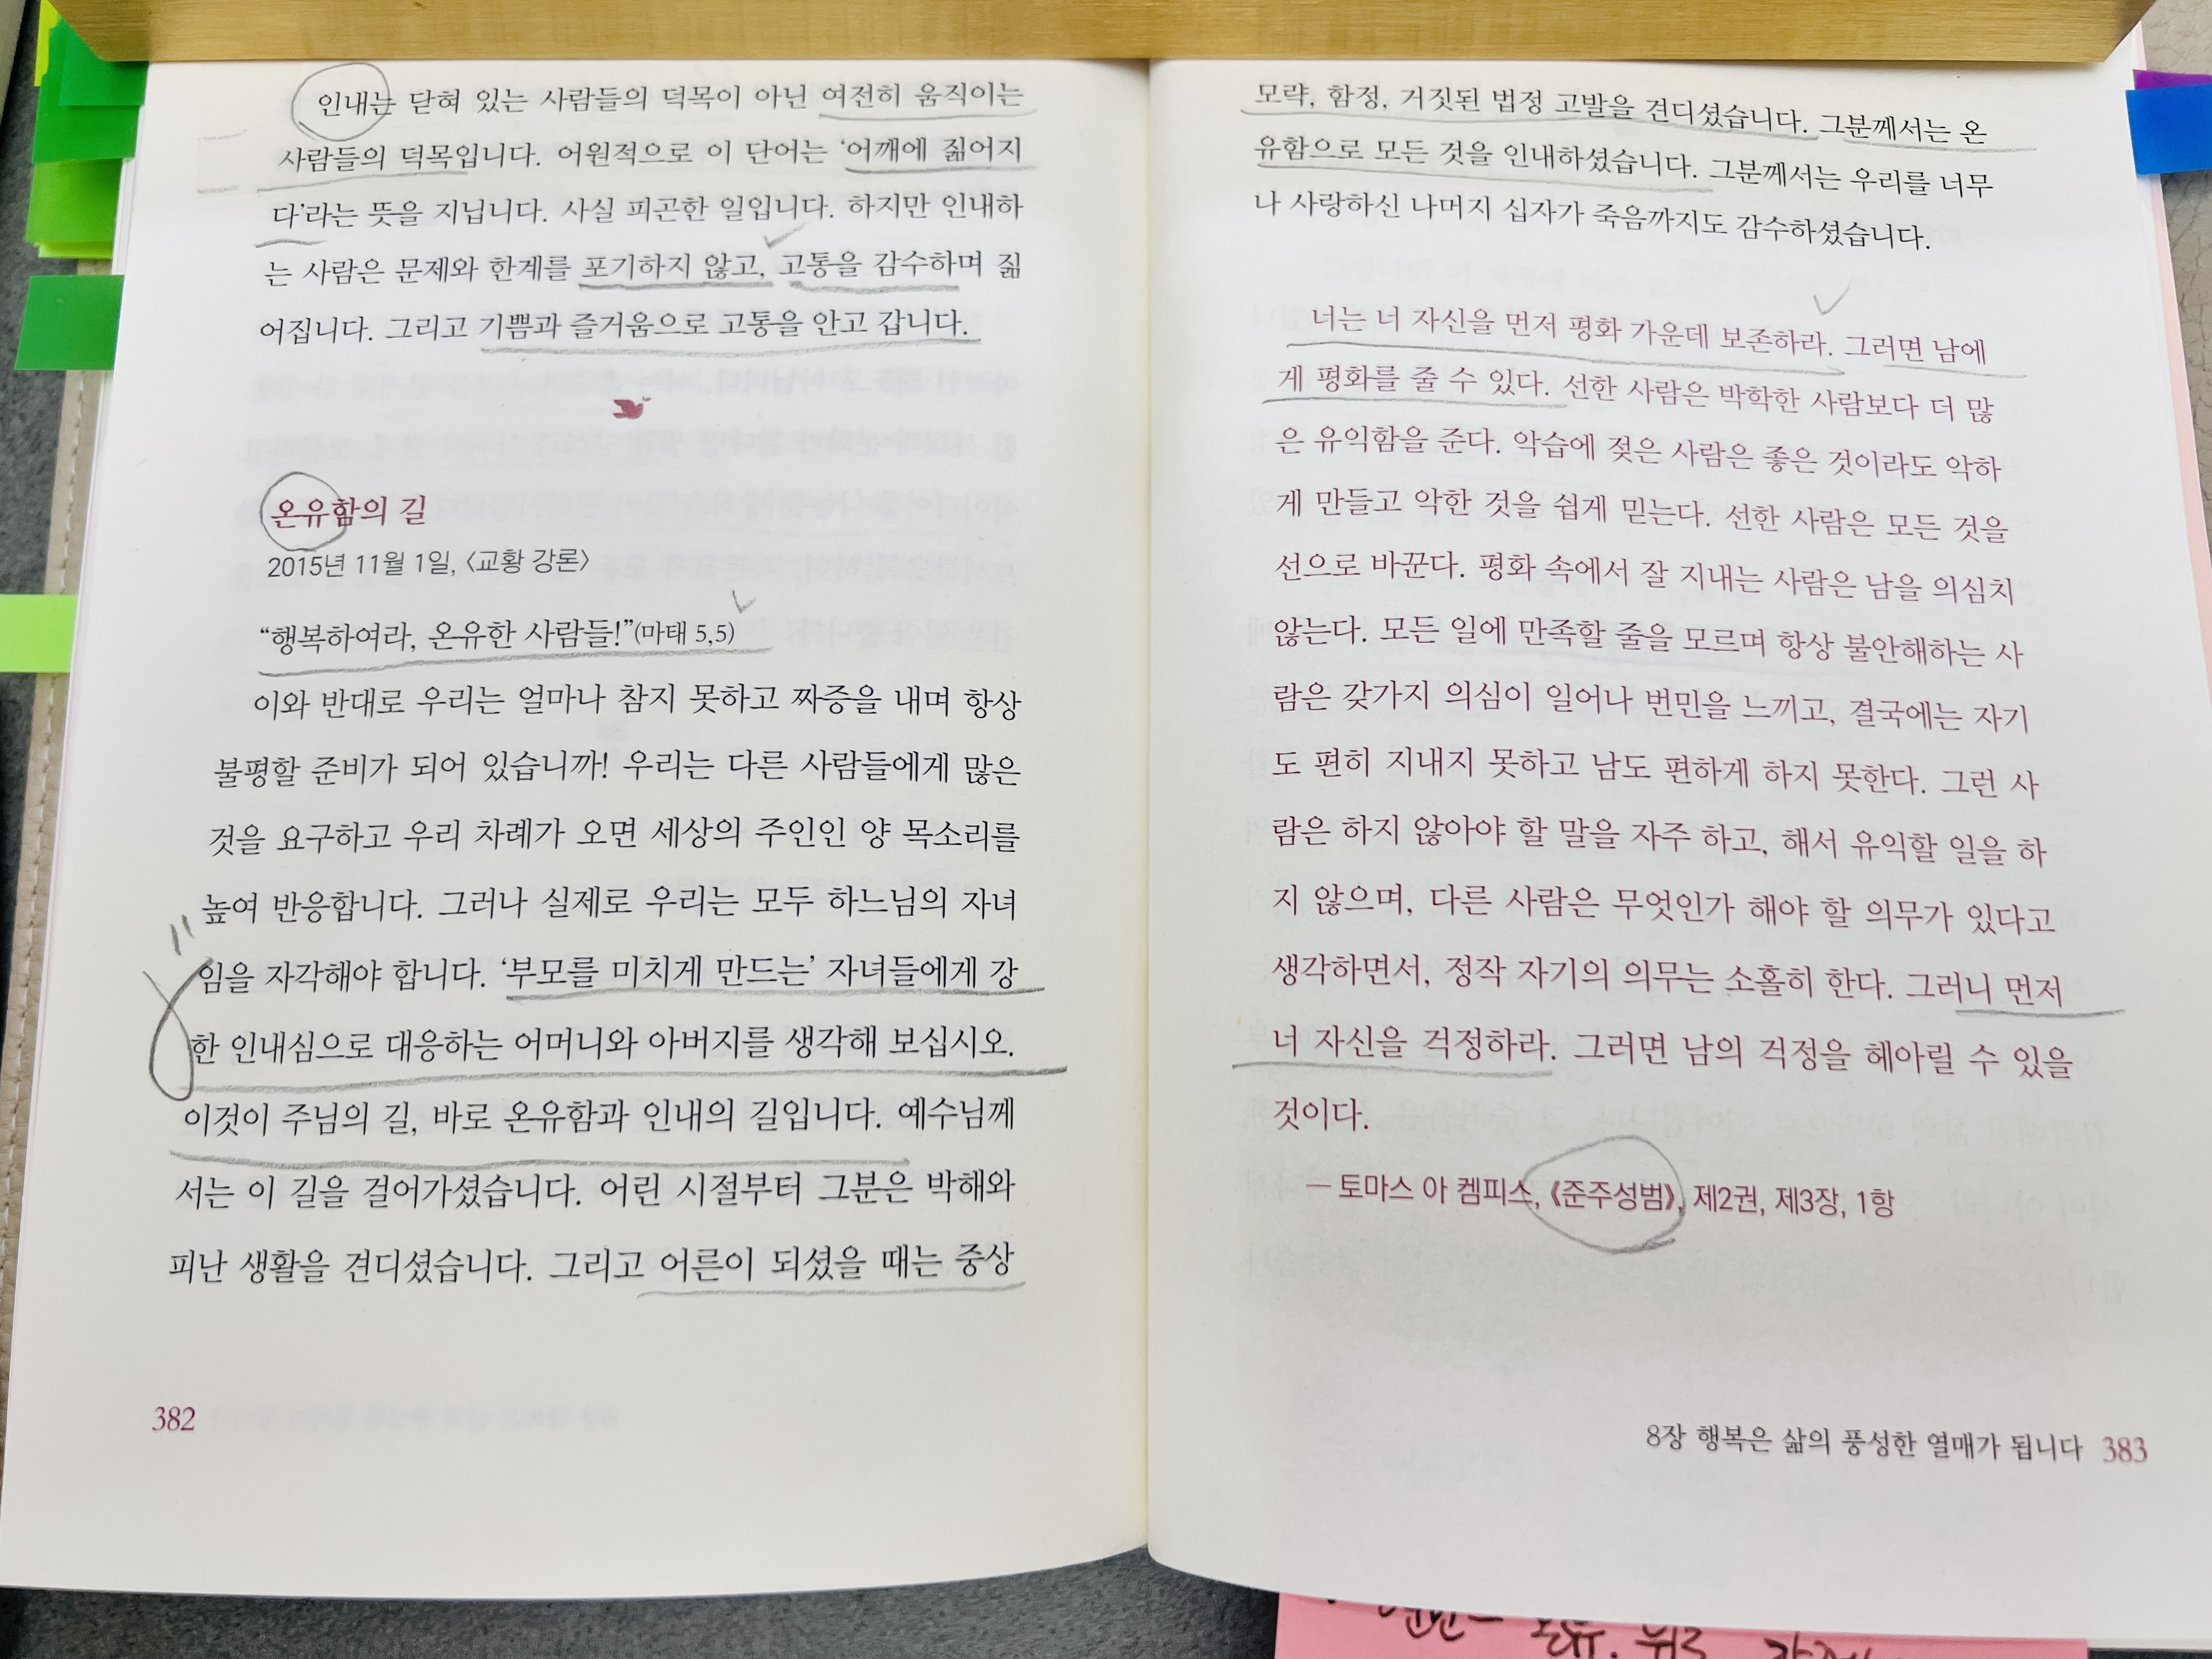 인내는 닫혀 있는 사람들의 덕목이 아닌 여전히 움직이는
사람들의 덕목입니다. 어원적으로 이 단어는 ‘어깨에 짊어지
다’라는 뜻을 지닙니다. 사실 피곤한 일입니다. 하지만 인내하
는 사람은 문제와 한계를 포기하지 않고, 고통을 감수하며 짊
어집니다. 그리고 기쁨과 즐거움으로 고통을 안고 갑니다.
온유함의 길
2015년 11월 1일, 〈교황 강론〉
“행복하여라, 온유한 사람들!”(마태 5,5)
이와 반대로 우리는 얼마나 참지 못하고 짜증을 내며 항상
불평할 준비가 되어 있습니까! 우리는 다른 사람들에게 많은
것을 요구하고 우리 차례가 오면 세상의 주인인 양 목소리를
높여 반응합니다. 그러나 실제로 우리는 모두 하느님의 자녀
임을 자각해야 합니다. ‘부모를 미치게 만드는’ 자녀들에게 강
한 인내심으로 대응하는 어머니와 아버지를 생각해 보십시오.
이것이 주님의 길, 바로 온유함과 인내의 길입니다. 예수님께
서는 이 길을 걸어가셨습니다. 어린 시절부터 그분은 박해와
피난 생활을 견디셨습니다. 그리고 어른이 되셨을 때는 중상
382
모략, 함정, 거짓된 법정 고발을 견디셨습니다. 그분께서는 온
유함으로 모든 것을 인내하셨습니다. 그분께서는 우리를 너무
나 사랑하신 나머지 십자가 죽음까지도 감수하셨습니다.
너는 너 자신을 먼저 평화 가운데 보존하라. 그러면 남에
게 평화를 줄 수 있다. 선한 사람은 박학한 사람보다 더 많
은 유익함을 준다. 악습에 젖은 사람은 좋은 것이라도 악하
게 만들고 악한 것을 쉽게 믿는다. 선한 사람은 모든 것을
선으로 바꾼다. 평화 속에서 잘 지내는 사람은 남을 의심치
않는다. 모든 일에 만족할 줄을 모르며 항상 불안해하는 사
람은 갖가지 의심이 일어나 번민을 느끼고, 결국에는 자기
도 편히 지내지 못하고 남도 편하게 하지 못한다. 그런 사
람은 하지 않아야 할 말을 자주 하고, 해서 유익할 일을 하
지 않으며, 다른 사람은 무엇인가 해야 할 의무가 있다고
생각하면서, 정작 자기의 의무는 소홀히 한다. 그러니 먼저
너 자신을 걱정하라. 그러면 남의 걱정을 헤아릴 수 있을
것이다.
— 토마스 아 켐피스, 《준주성범》, 제2권, 제3장, 1항
8장 행복은 삶의 풍성한 열매가 됩니다 383